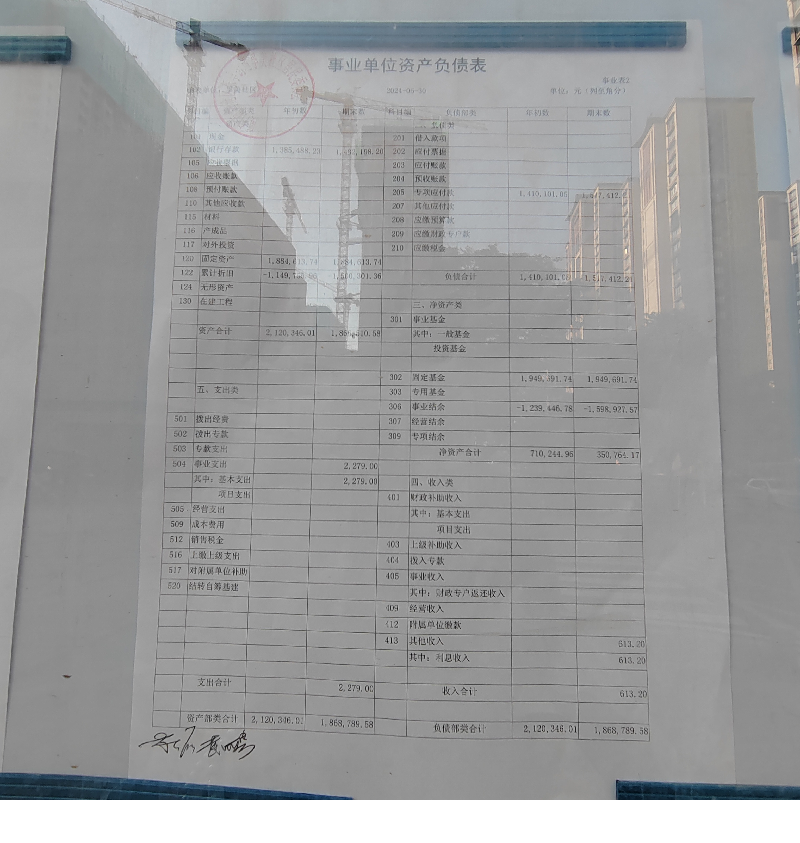 事业单位资产负债表
事业表2
2024-09-30 单位：元（列至角分）
年初数 期末数 科目编 负债部类 年初数 期末数
101 现金 201 借入款项
102 银行存款 1,385,488.23 202 应付票据
105 应收票据 203 应付账款
106 应收账款 204 预收账款
108 预付账款 205 专项应付款
110 其他应收款 207 其他应付款
115 材料 208 应缴预算款
116 产成品 209 应缴财政专户款
117 对外投资 210 应缴税金
120 固定资产 1,884,613.74 1,884,613.74
122 累计折旧 负债合计
124 无形资产
130 在建工程 三、净资产类
301 事业基金
资产合计 2,120,346.01 其中：一般基金
投资基金
302 固定基金 1,949,691.74 1,949,691.74
五、支出类 303 专用基金
306 事业结余 -1,239,446.78 -1,598,927.57
501 拨出经费 307 经营结余
502 拨出专款 309 专项结余
503 专款支出 净资产合计 710,244.96 350,764.17
504 事业支出 2,279.00
其中：基本支出 2,279.00 四、收入类
项目支出 401 财政补助收入
505 经营支出 其中：基本支出
509 成本费用 项目支出
512 销售税金 403 上级补助收入
516 上缴上级支出 404 拨入专款
517 对附属单位补助 405 事业收入
520 结转自筹基建 其中：财政专户返还收入
409 经营收入
412 附属单位缴款
413 其他收入 613.20
其中：利息收入 613.20
支出合计 2,279.00 收入合计 613.20
资产部类合计 2,120,346.01 1,868,789.58 负债部类合计 2,120,346.01 1,868,789.58